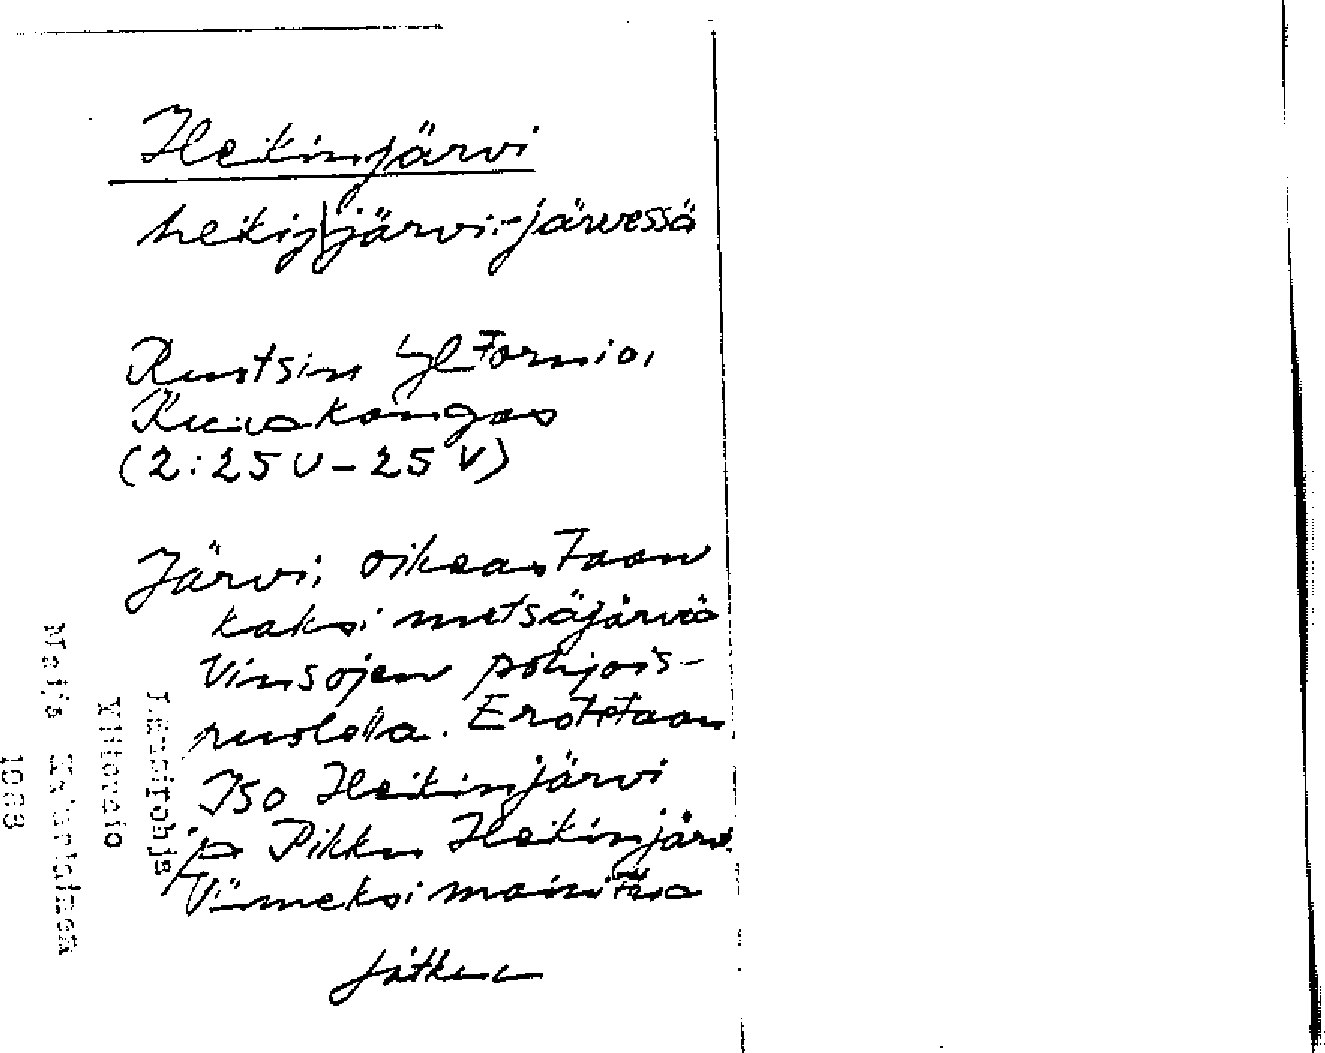 Heikinjärvi
heikiŋ|järvi: -järvessä
Ruotsin Yl Tornio,
Kuivakangas
(2:25 U-25 V)
Järvi; oikeastaan
kaksi metsäjärveä
Vinsojen pohjois-
puolella. Erotetaan
Iso Heikinjärvi
ja Pikku Heikinjärvi
Viimeksi mainittua
jatkuu
Länsipohja
Ylitornio
Maija
1983